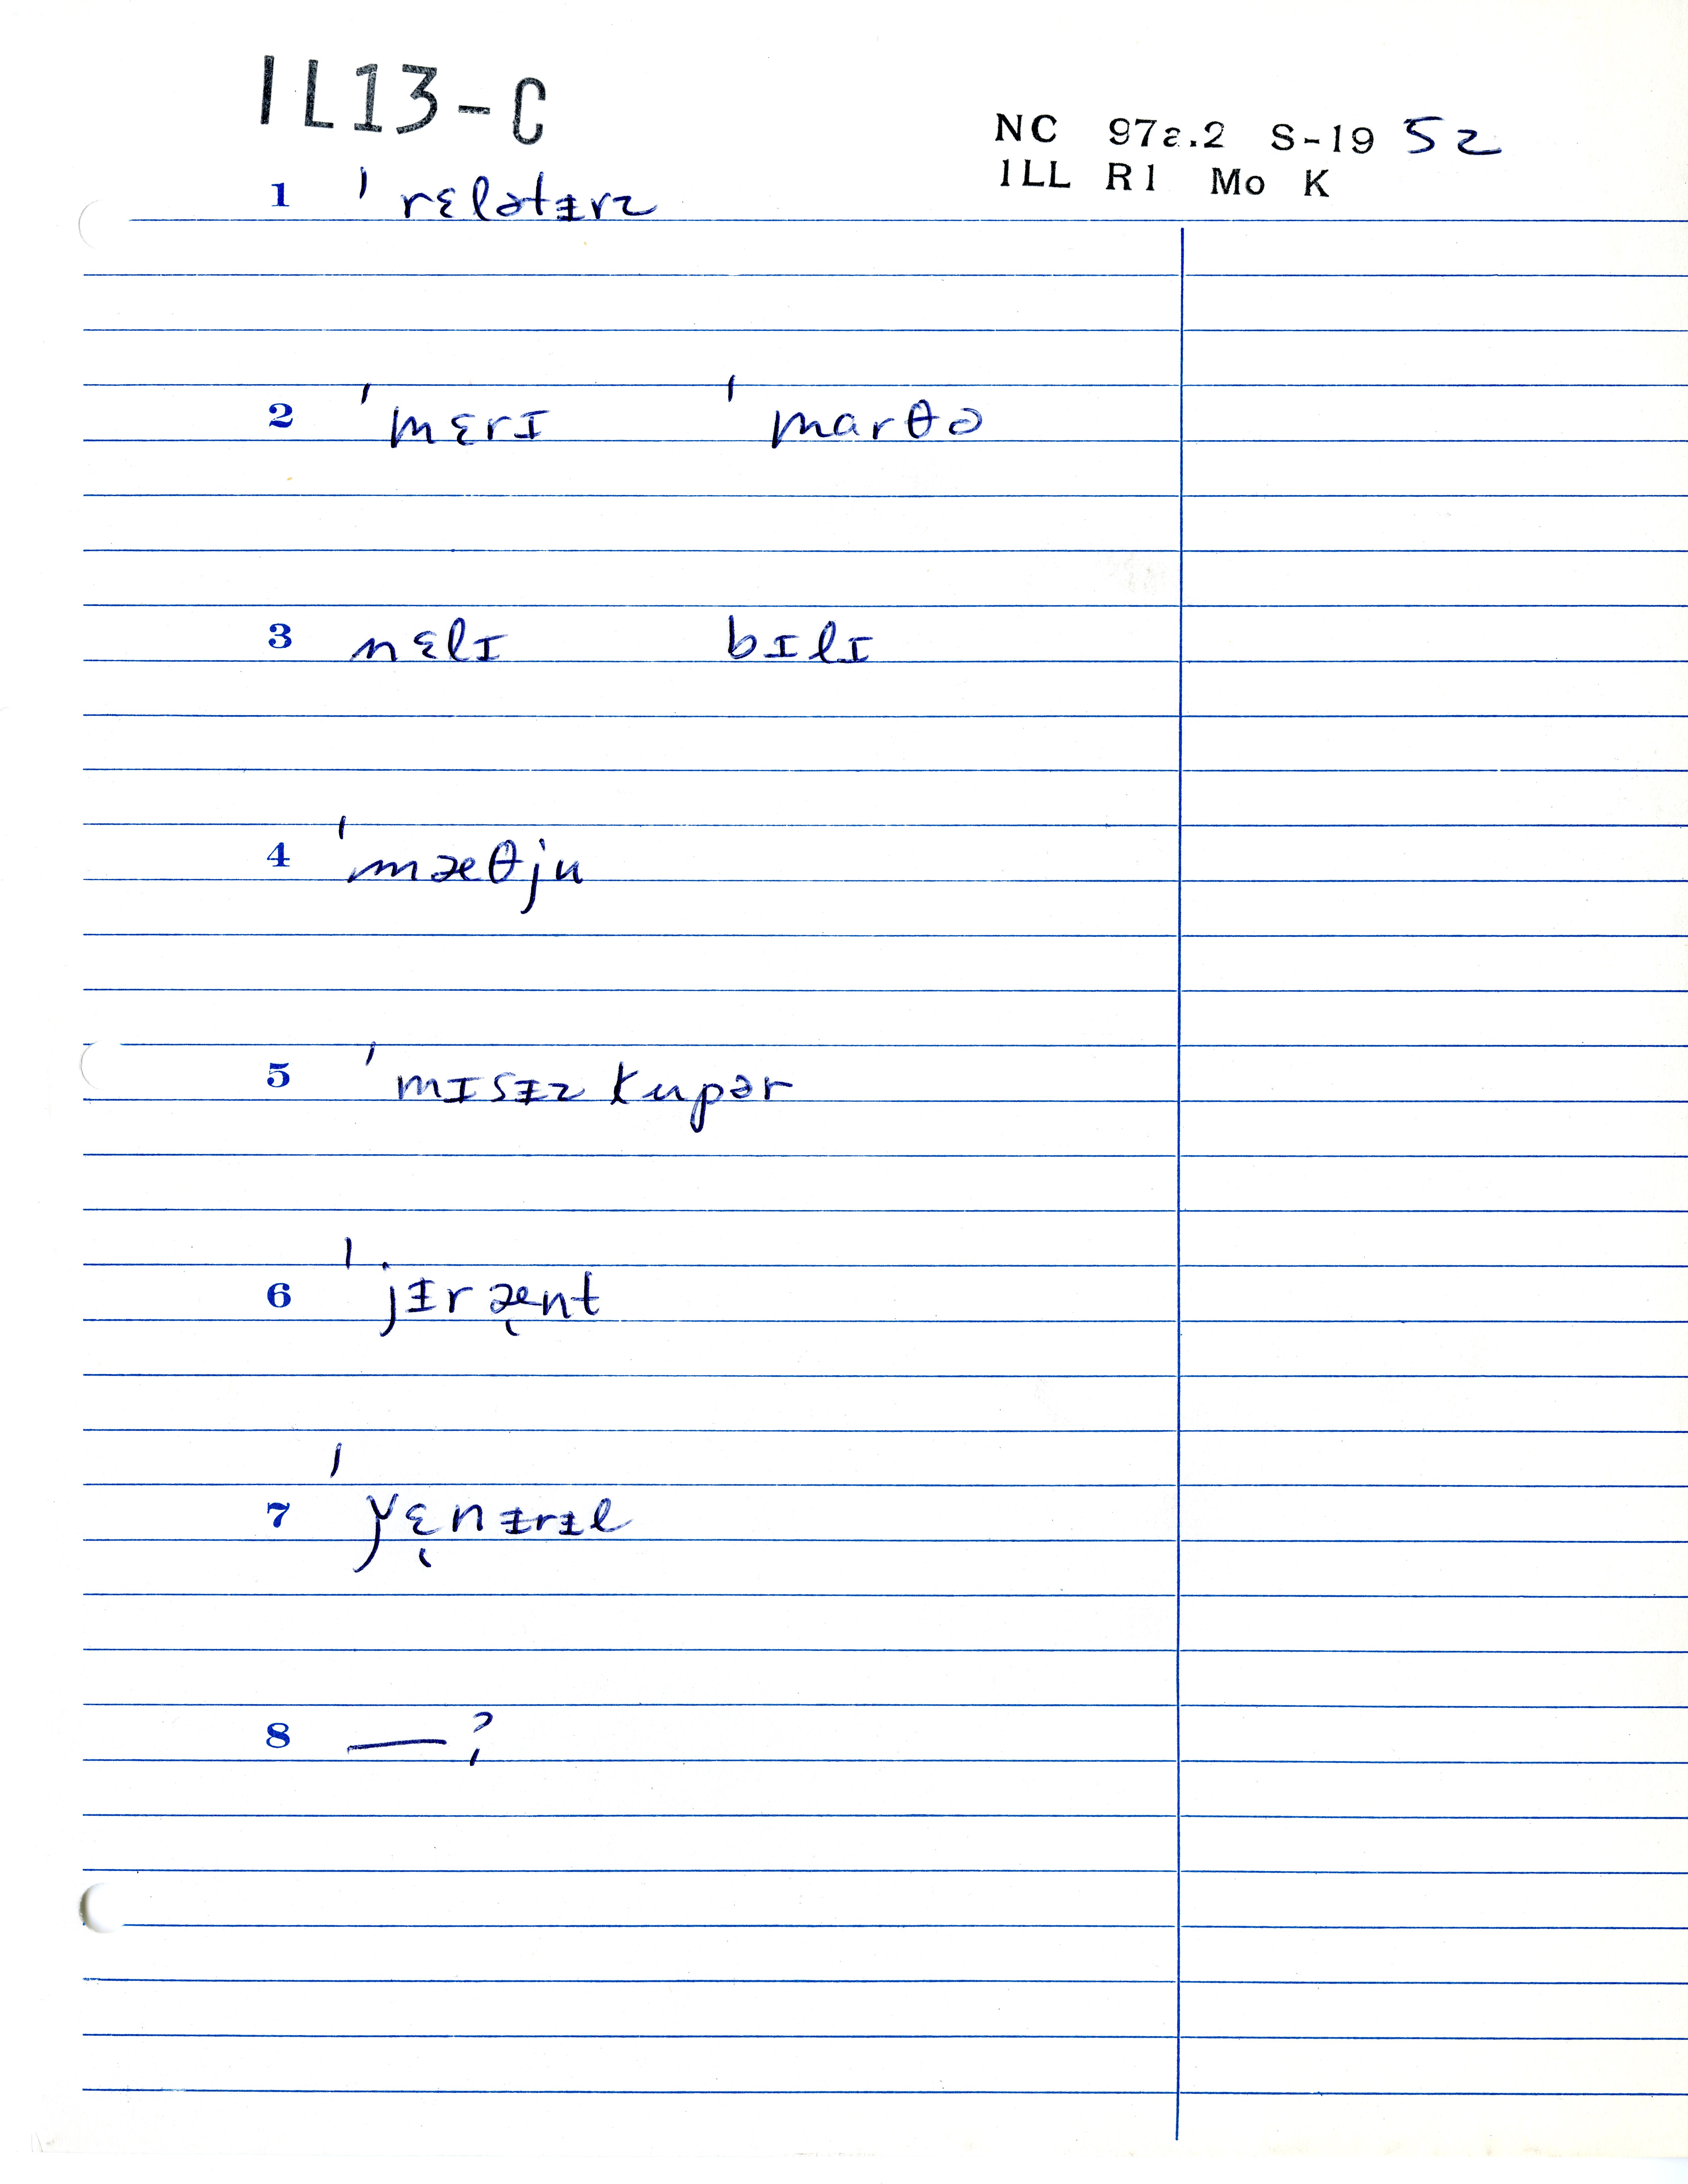 IL13-C
NC 978.2 S-19 52
ILL R1 Mo K
1 ˈrɛlətᵻrz
2 ˈmɛrɪ ˈmarθə
3 nɛlɪ bɪlɪ
4 ˈmæθju
5 ˈmɪsᵻz kupər
6 ˈjᵻræ̨nt
7 ˈɣɛ̨nᵻrᵻl
8 — ?